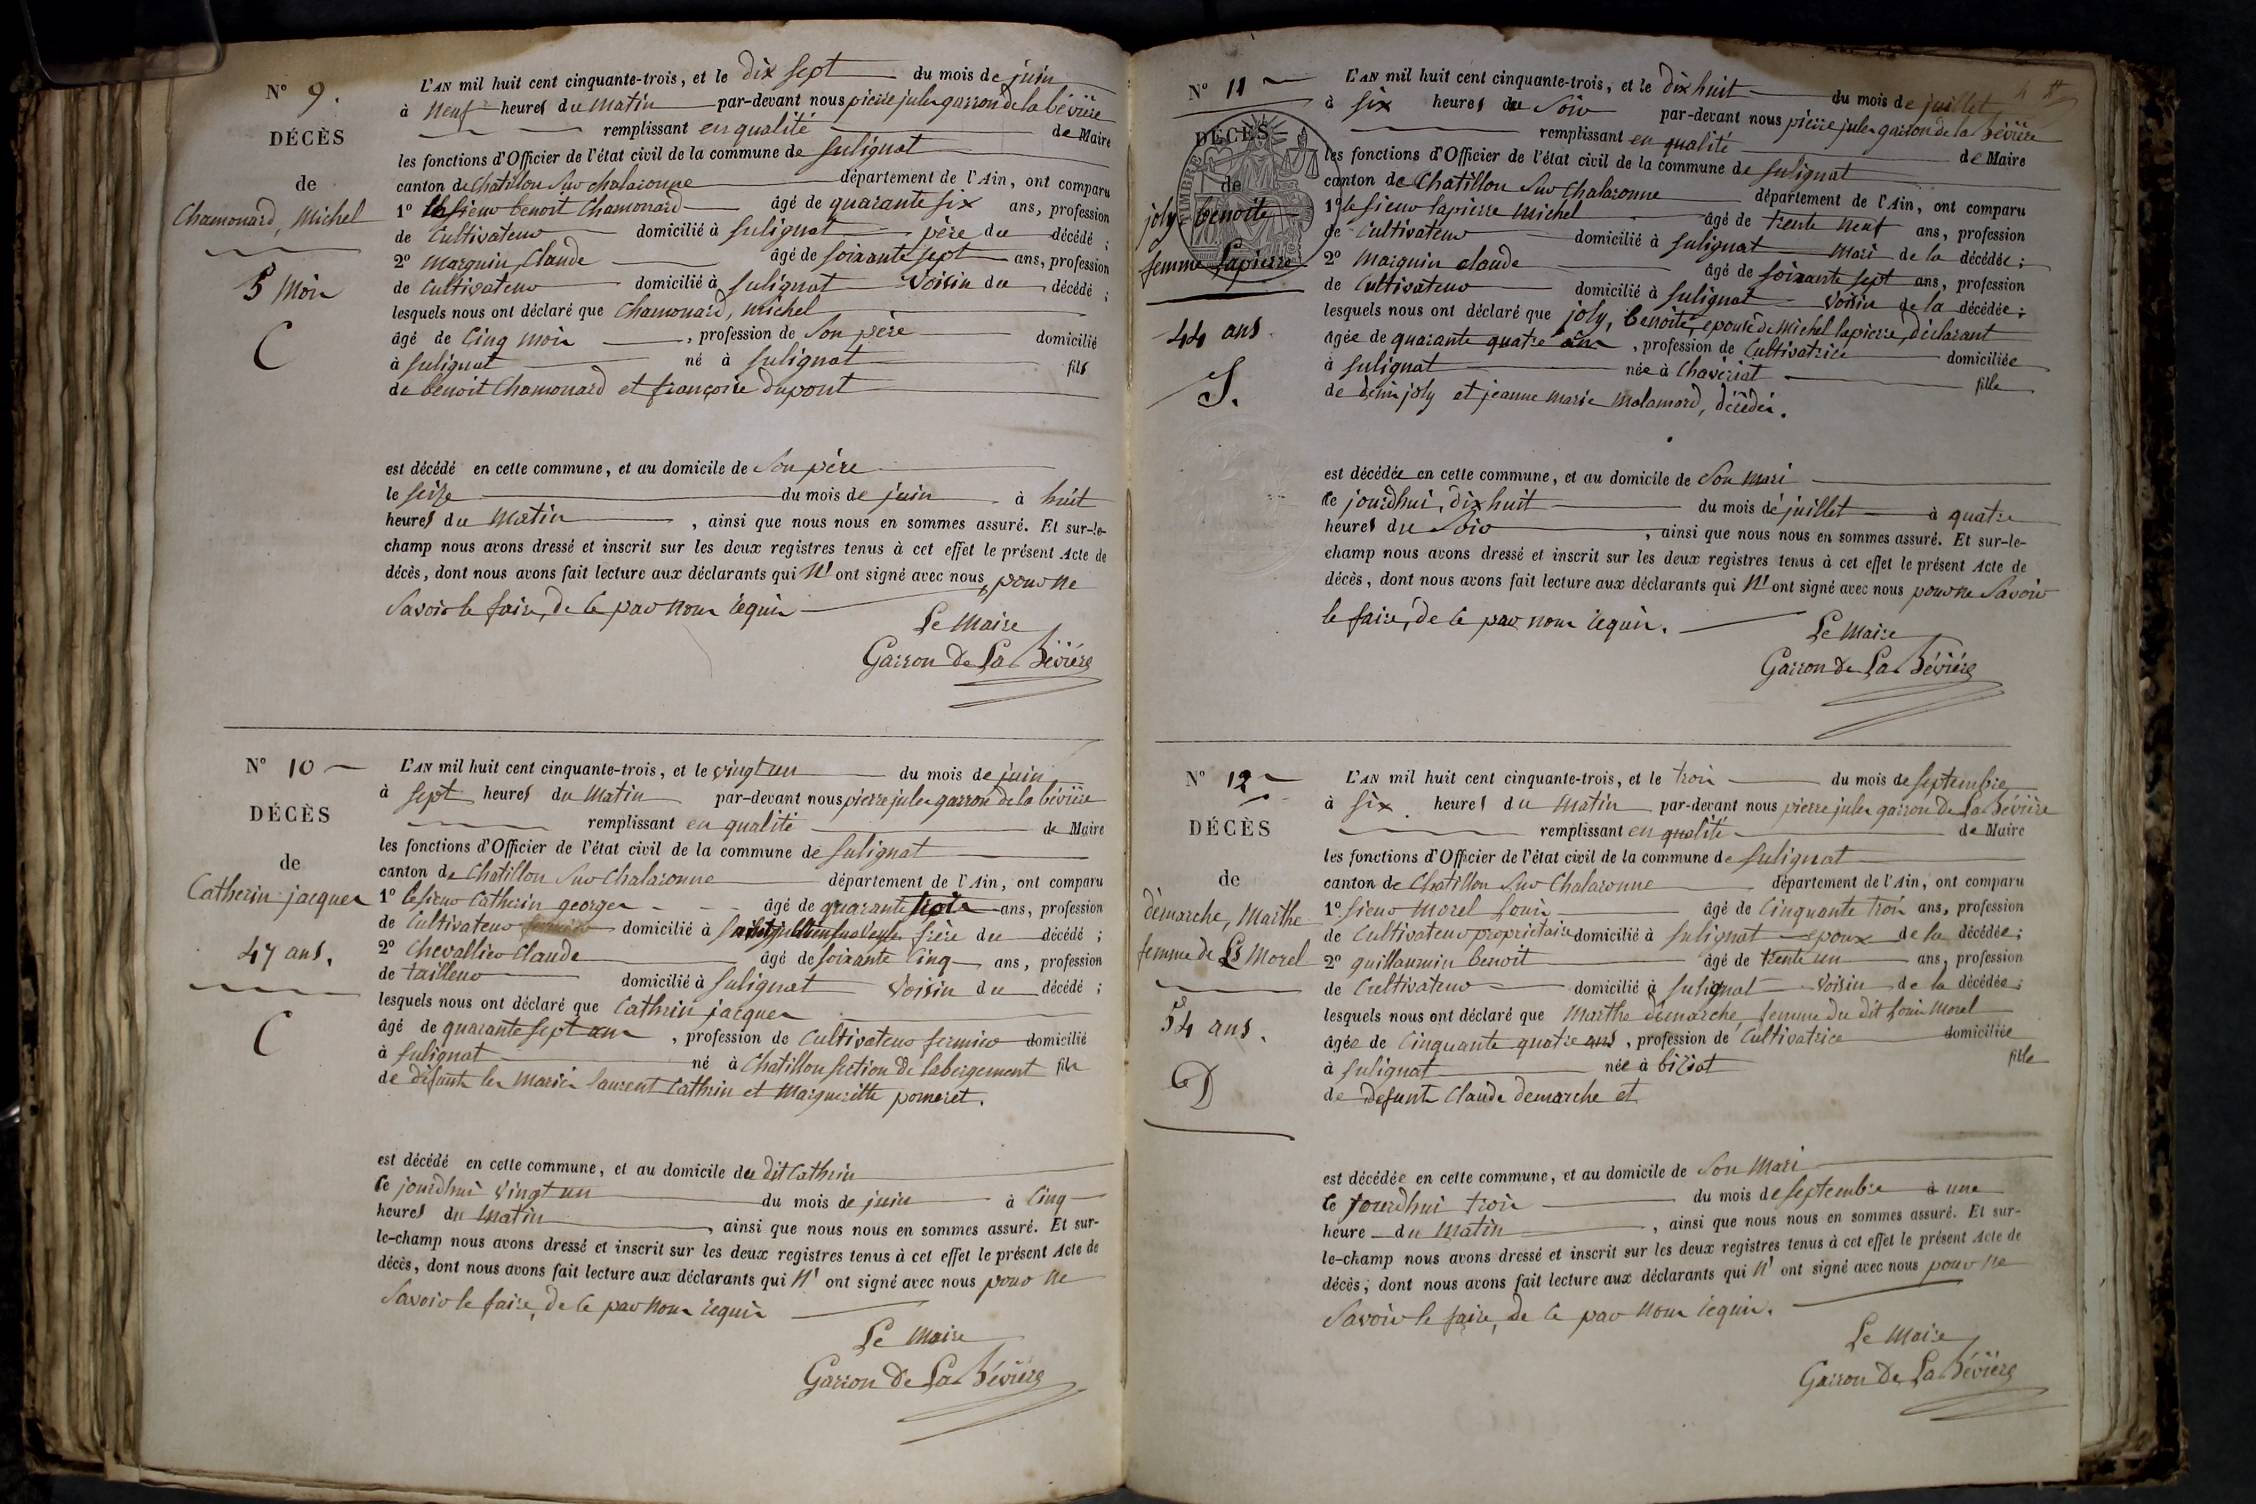 N° 9.
DÉCÈS
de
Chamonard, Michel
5 Moir
C
L'AN mil huit cent cinquante-trois, et le dix sept du mois de juin
à neuf heures du matin par-devant nous pierre jules garron de la bévière
remplissant en qualité de Maire
les fonctions d'Officier de l'état civil de la commune de Sulignat
canton de Chatillon Sur chalaronne département de l'Ain, ont comparu
1° le sieur benoit Chamonard âgé de quarante six ans, profession
de Cultivateur domicilié à Sulignat père du décédé ;
2° Marguin Claude âgé de soixante sept ans, profession
de Cultivateur domicilié à Sulignat Voisin du décédé ;
lesquels nous ont déclaré que Chamonard, michel
âgé de Cinq moir , profession de Son père domicilié
à Sulignat né à Sulignat fils
de benoit Chamonard et françoise dupont
est décédé en cette commune, et au domicile de Son père
le seize du mois de juin à huit
heures du Matin , ainsi que nous nous en sommes assuré. Et sur-le-
champ nous avons dressé et inscrit sur les deux registres tenus à cet effet le présent Acte de
décès, dont nous avons fait lecture aux déclarants qui N' ont signé avec nous, pour ne
Savoir le faire, de ce par nous requir
Le Maire
Garron De La Bévière
N° 10
DÉCÈS
de
Catherin jacques
47 ans.
C
L'AN mil huit cent cinquante-trois, et le vingt un du mois de juin
à sept heures du Matin par-devant nous pierre jules garron de la bévière
remplissant en qualité de Maire
les fonctions d'Officier de l'état civil de la commune de Sulignat
canton de Chatillon Sur Chalaronne département de l'Ain, ont comparu
1° le sieur Catherin georges âgé de quarante ans, profession
de Cultivateur domicilié à frère du décédé ;
2° Chevallier Claude âgé de soixante Cinq ans, profession
de tailleur domicilié à Sulignat Voisin du décédé ;
lesquels nous ont déclaré que Cathrin jacques
âgé de quarante sept ans , profession de Cultivateur fermier domicilié
à Sulignat né à Chatillon section de labergement fils
de défunts les mariés Laurent Cathrin et Margueritte pomeret.
est décédé en cette commune, et au domicile du dit Cathrin
ce jourdhui vingt un du mois de juin à Cinq
heures du Matin , ainsi que nous nous en sommes assuré. Et sur-
le-champ nous avons dressé et inscrit sur les deux registres tenus à cet effet le présent Acte de
décès, dont nous avons fait lecture aux déclarants qui N' ont signé avec nous pour ne
Savoir le faire, de ce par nous requir
Le Maire
Garron De La Bévière
N° 11
DÉCÈS
de
TIMBRE
joly benoite
femme Lapierre
44 ans
S.
L'AN mil huit cent cinquante-trois, et le dix huit du mois de juillet
à six heures du Soir par-devant nous pierre jules garron de la bévière
remplissant en qualité de Maire
les fonctions d'Officier de l'état civil de la commune de Sulignat
canton de Chatillon Sur Chalaronne département de l'Ain, ont comparu
1° le sieur Lapierre Michel âgé de trente neuf ans, profession
de Cultivateur domicilié à Sulignat Mari de la décédée ;
2° Marguin claude âgé de soixante sept ans, profession
de Cultivateur domicilié à Sulignat Voisin de la décédée ;
lesquels nous ont déclaré que joly, benoite, epouse de Michel lapierre, déclarant
âgée de quarante quatre ans , profession de Cultivatrice domiciliée
à Sulignat née à Chaveriat fille
de denis joly et jeanne marie Malamard, décédés.
est décédée en cette commune, et au domicile de Son Mari
ce jourdhui, dix huit du mois de juillet à quatre
heures du Soir , ainsi que nous nous en sommes assuré. Et sur-le-
champ nous avons dressé et inscrit sur les deux registres tenus à cet effet le présent Acte de
décès, dont nous avons fait lecture aux déclarants qui N' ont signé avec nous pour ne Savoir
le faire, de ce par nous requir.
Le Maire
Garron De La Bévière
N° 12
DÉCÈS
de
démarche, Marthe
femme de Ls Morel
54 ans.
D
L'AN mil huit cent cinquante-trois, et le trois du mois de septembre
à six heures du Matin par-devant nous pierre jules garron de la bévière
remplissant en qualité de Maire
les fonctions d'Officier de l'état civil de la commune de Sulignat
canton de Chatillon Sur Chalaronne département de l'Ain, ont comparu
1° sieur Morel Louis âgé de Cinquante trois ans, profession
de Cultivateur propriétaire domicilié à Sulignat epoux de la décédée ;
2° guillaumin benoit âgé de trente un ans, profession
de Cultivateur domicilié à Sulignat Voisin de la décédée ;
lesquels nous ont déclaré que Marthe démarche, femme du dit Louis Morel
âgée de Cinquante quatre ans , profession de Cultivatrice domiciliée
à Sulignat née à biziat fille
de defunts Claude demarche et
est décédée en cette commune, et au domicile de Son Mari
ce jourdhui trois du mois de septembre à une
heure du Matin , ainsi que nous nous en sommes assuré. Et sur-
le-champ nous avons dressé et inscrit sur les deux registres tenus à cet effet le présent Acte de
décès, dont nous avons fait lecture aux déclarants qui N' ont signé avec nous pour ne
Savoir le faire, de ce par nous requir.
Le Maire
Garron De La Bévière